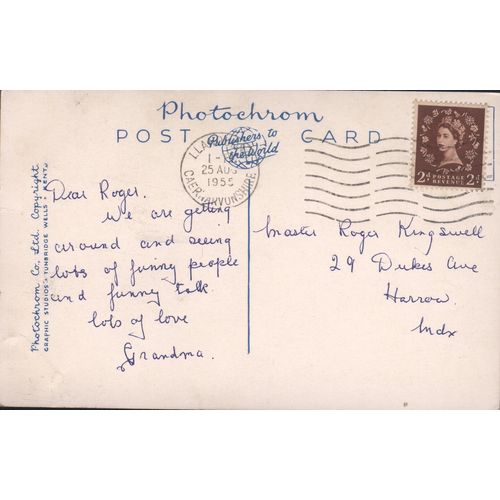 Photochrom
POST CARD
Publishers to
the World
LLA
1-
25 AUG
1955
CAERNARVONSHIRE
2D POSTAGE 2D
REVENUE
Photochrom Co., Ltd. Copyright
GRAPHIC STUDIOS • TUNBRIDGE WELLS • KENT
Dear Roger.
We are getting
around and seeing
lots of funny people
and funny talk.
lots of love
Grandma.
Master Roger Kingswell
29 Dukes Ave
Harrow.
Mdx